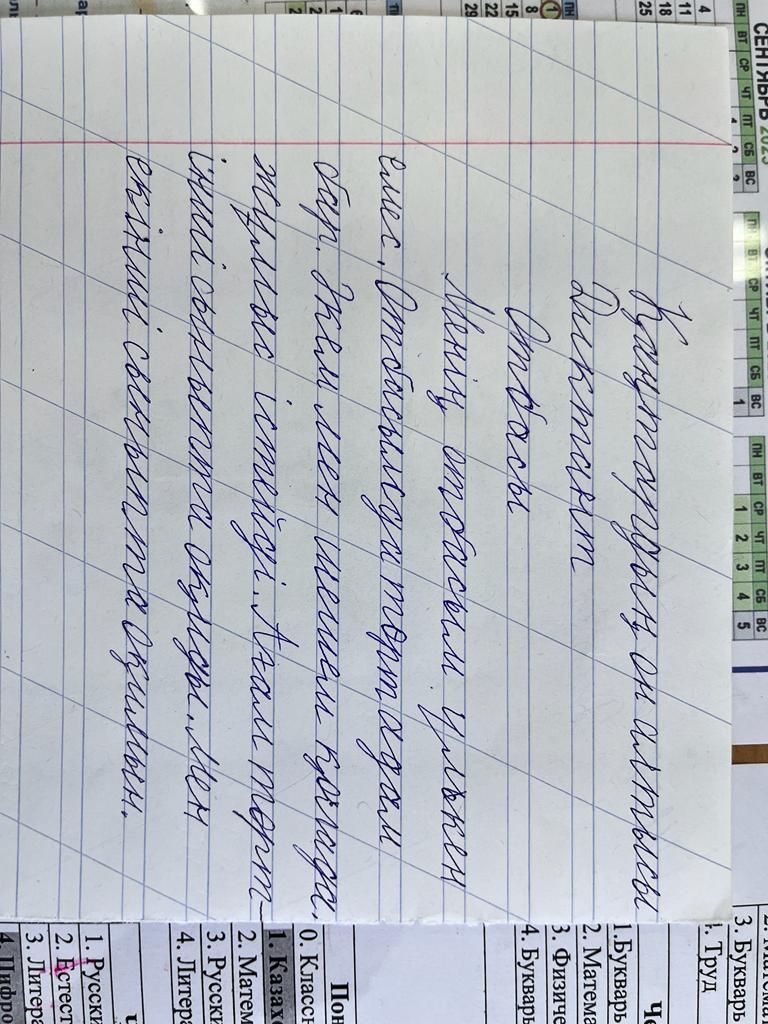 СЕНТЯБРЬ 2023
ПН ВТ СР ЧТ ПТ СБ ВС
4 11 18 25
ПН ВТ СР ЧТ ПТ СБ ВС
1
ПН ВТ СР ЧТ ПТ СБ ВС
1 2 3 4 5
ПН
1 8 15 22 29
Қаңтардың он алтысы
Диктант
Отбасы
Менің отбасым үлкен
емес. Отбасымда төрт адам
бар. Әкем мен шешем қалада
жұмыс істейді. Ағам төрт-
інші сыныпта оқиды. Мен
екінші сыныпта оқимын.
3. Букварь
Труд
1.Букварь
2. Матема
3. Физиче
4. Букварь
Пон
0. Классн
1. Казахс
2. Матем
3. Русски
4. Литера
1. Русски
2. Естест
3. Литера
4. Цифро